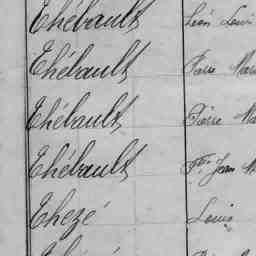 Thébault Léon Louis
Thébault Pierre Mar
Thébault Pierre Ma
Thébault Fs Jean M
Thezé Louis